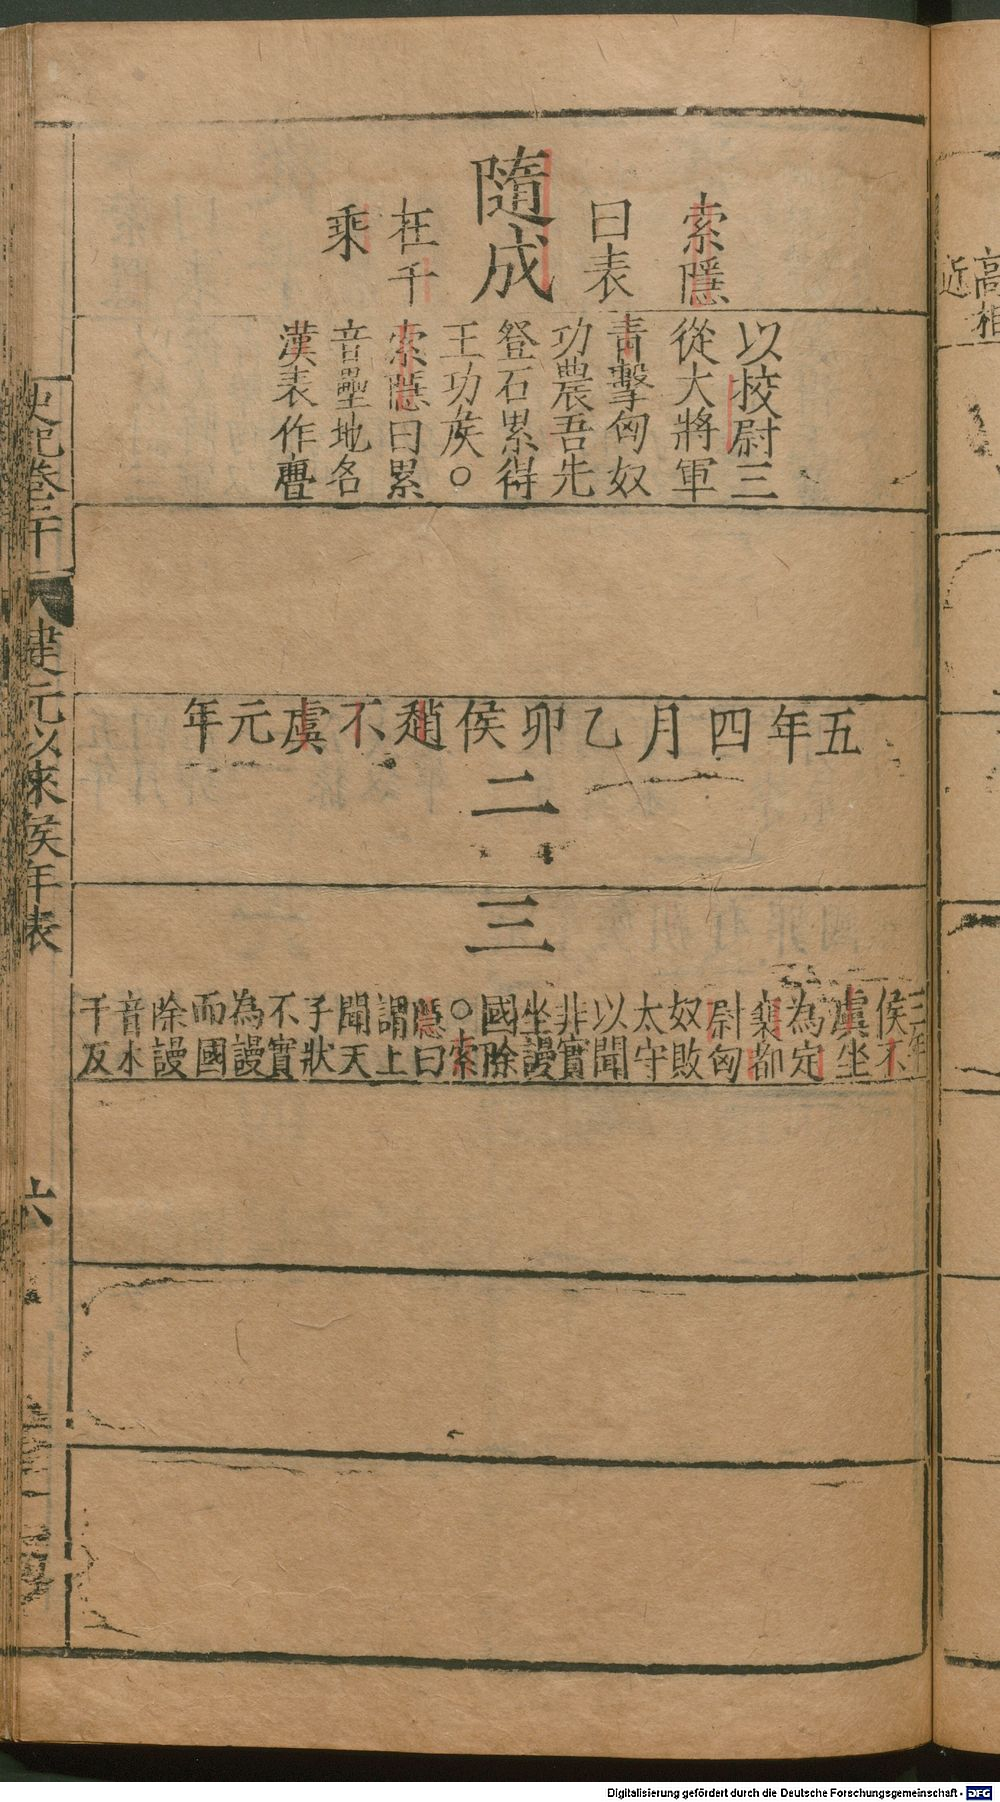 隨成
索隱
曰表
在千
乘
以校尉三
從大將軍
青擊匈奴
功農吾先
登石累得
王功侯○
索隱曰累
音壘地名
漢表作㽮
五年四月乙卯侯趙不虞元年
二
三
三年
侯不
虞坐
為定
襄都
尉匈
奴敗
太守
以聞
非實
坐謾
國除
○索
隱曰
謂上
聞天
子狀
不實
為謾
而國
除謾
音木
干反
史記卷二十
建元以來侯年表
六
高相
近
Digitalisierung gefördert durch die Deutsche Forschungsgemeinschaft - DFG